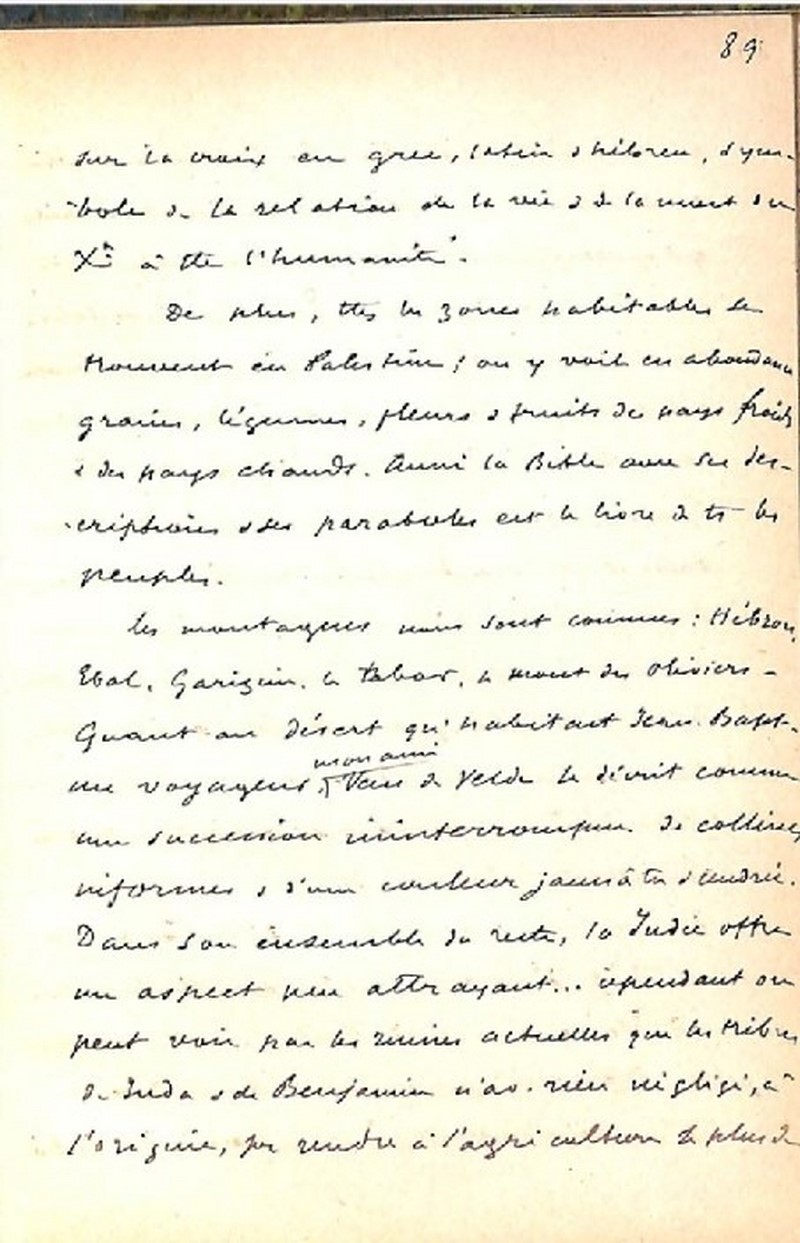 89
sur la croix en grec, latin & hébreu, sym-
-bole de la relation de la vie & de la mort du
Xt à tte l'humanité".
De plus, ttes les zones habitables se
trouvent en Palestine ; on y voit en abondance
graines, légumes, fleurs & fruits des pays froids
& des pays chauds. Aussi la Bible avec ses des-
-criptions & ses paraboles est le livre de ts les
peuples.
Les montagnes nous sont connues : Hébron,
Ebal, Garizim, le Tabor, le mont des Oliviers -
Quant au désert qu'habitait Jean-Bapt.
un voyageur, mon ami Van de Velde le décrit comme
une succession ininterrompue de collines
informes & d'une couleur jaunâtre cendrée.
Dans son ensemble du reste, la Judée offre
un aspect peu attrayant... cependant on
peut voir par les ruines actuelles que les tribus
de Juda & de Benjamin n'av. rien négligé, à
l'origine, pr rendre à l'agriculture le plus de